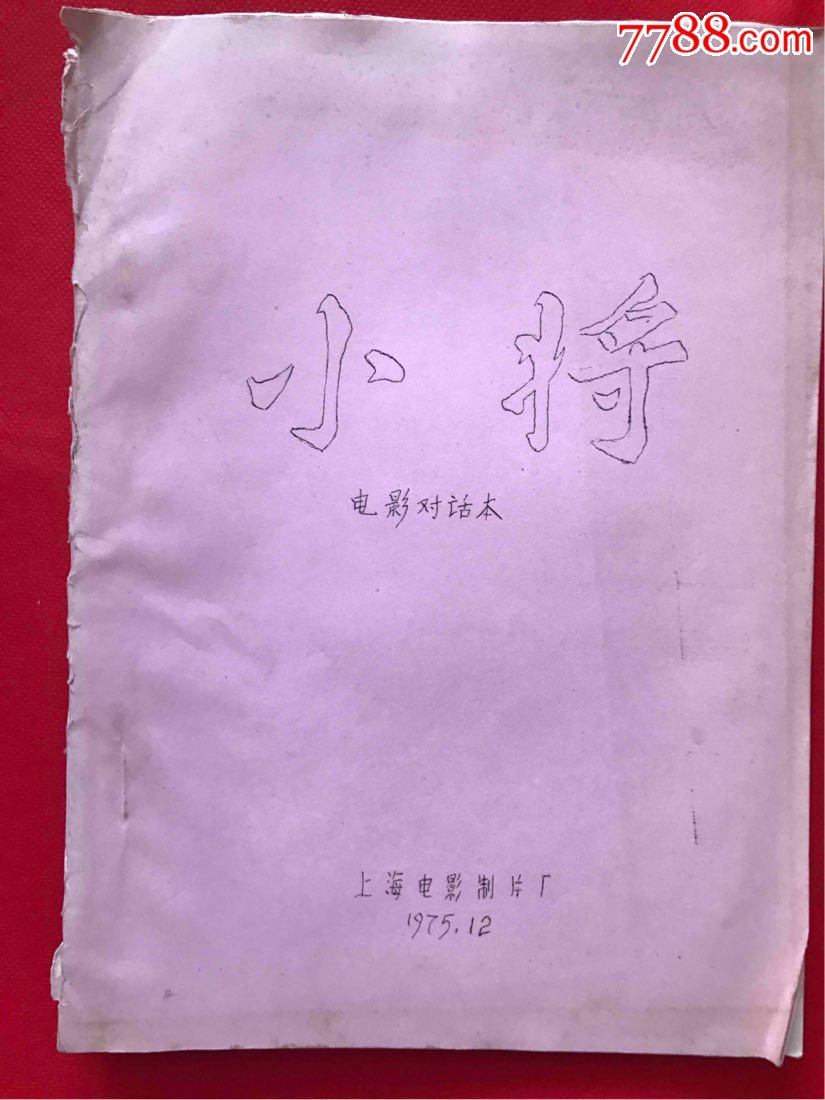 7788.com
小将
电影对话本
上海电影制片厂
1975.12